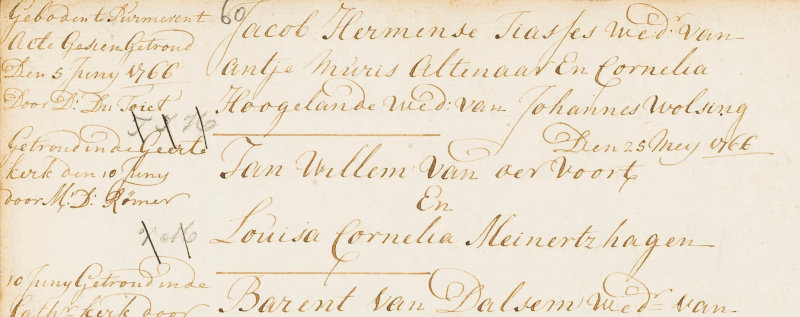 Geboden te Purmerent
Acte Gesien Getroud
Den 5 Juny 1766
Door D: Du Toict
60
Jacob Hermense Tiasjes Wed:r van
antje Muris Altenaar En Cornelia
Hoogelande Wed: van Johannes Wolsing
Den 25 Mey 1766
Getroud in de Geerte
kerk den 10 Juny
door M:r D: Römer
Jan Willem van der Voort
En
Louisa Cornelia Meinertzhagen
10 Juny Getroud in de
Cath:e kerk door
Barent van Dalsem Wed:r van